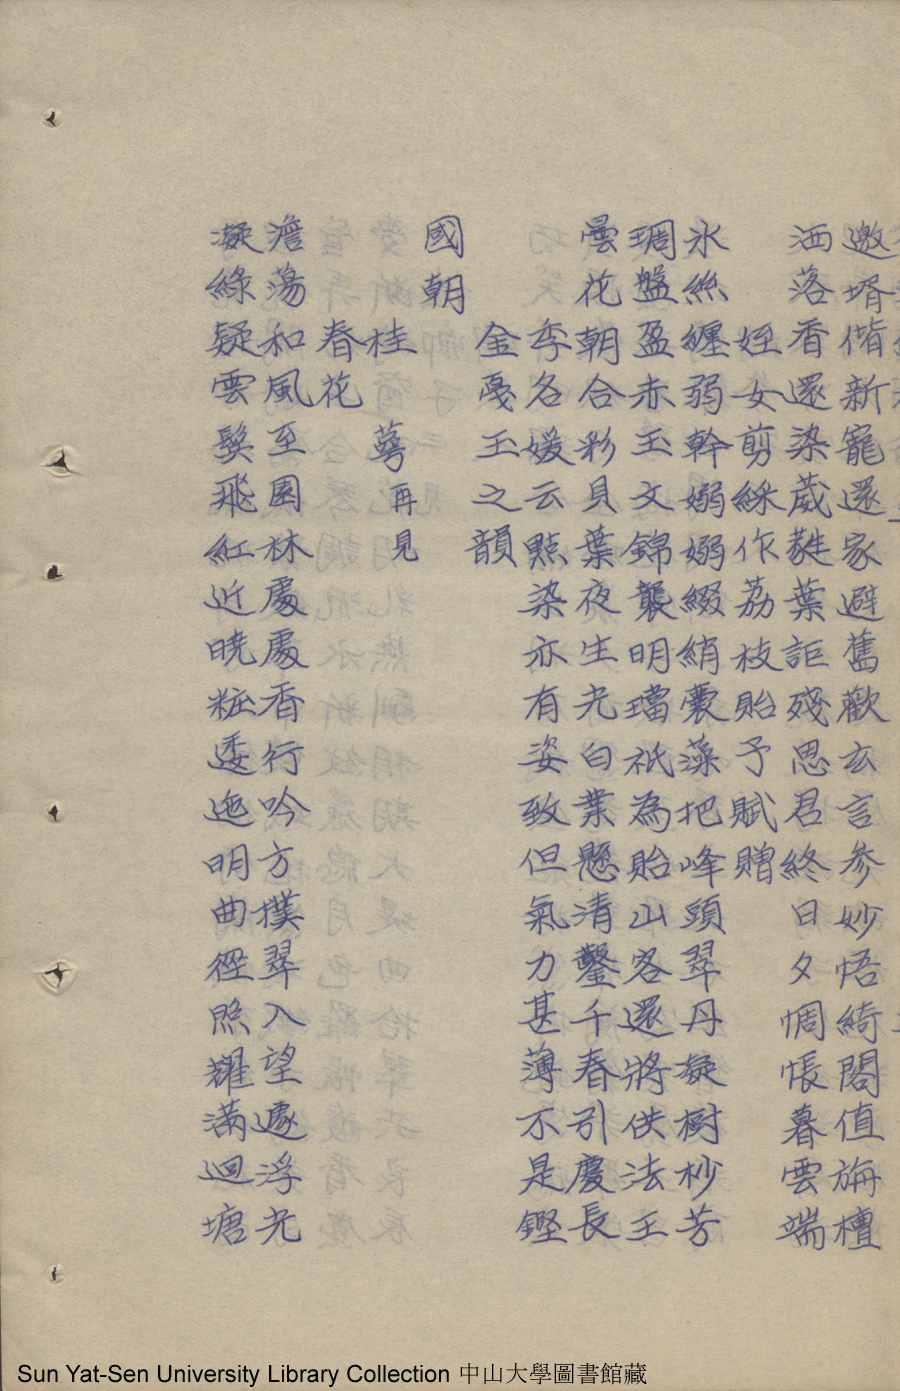 邀壻偕新寵還家避舊歡玄言參妙悟綺閣值旃檀
洒落香還染葳蕤葉詎殘思君終日夕惆悵暮雲端
姪女剪綵作荔枝貽予賦贈
氷絲纏弱幹嫋嫋綴綃囊藻把峰頭翠丹凝樹杪芳
琱盤盈赤玉文錦襲明璫祇為貽山客還將供法王
曇花朝合彩貝葉夜生光白業懸清鑿千春引慶長
季各媛云點染亦有姿致但氣力甚薄不是鏗
金戞玉之韻
國朝
桂萼再見
春花
澹蕩和風至園林處處香行吟方撲翠入望遽浮光
凝綠疑雲鬟飛紅近曉粧逶迤明曲徑照耀滿迴塘
Sun Yat-Sen University Library Collection 中山大學圖書館藏